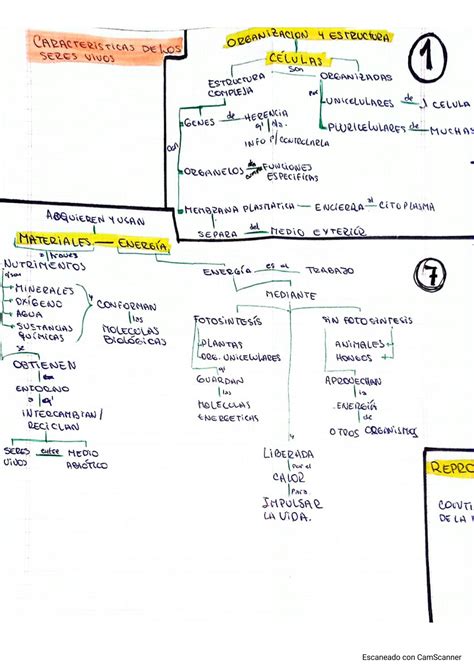 CARACTERÍSTICAS DE LOS
SERES VIVOS
ORGANIZACION Y ESTRUCTURA
1
CÉLULAS
SON
ESTRUCTURA
COMPLEJA
ORGANIZADAS
POR
UNICELULARES de 1 CELULA
PLURICELULARES de MUCHAS
CON
GENES de HERENCIA
INFO P/ CONTROLARLA
ORGANELOS de FUNCIONES
ESPECÍFICAS
MEMBRANA PLASMATICA ENCIERRA al CITOPLASMA
SEPARA del MEDIO EXTERIOR
ADQUIEREN Y USAN
MATERIALES — ENERGÍA
NUTRIMENTOS
MINERALES
OXÍGENO
AGUA
SUSTANCIAS
QUÍMICAS
CONFORMAN
las
MOLECULAS
BIOLÓGICAS
SE
OBTIENEN
en
ENTORNO
INTERCAMBIAN/
RECICLAN
SERES entre MEDIO
VIVOS ABIÓTICO
7
ENERGÍA es al TRABAJO
MEDIANTE
FOTOSÍNTESIS
PLANTAS
ORG. UNICELULARES
GUARDAN
las
MOLECULAS
ENERGETICAS
SIN FOTOSINTESIS
ANIMALES
HONGOS
APROVECHAN
la
ENERGÍA
de
OTROS ORGANISMOS
LIBERADA
por el
CALOR
para
IMPULSAR
LA VIDA.
REPRO
CONTI
DE LA
Escaneado con CamScanner